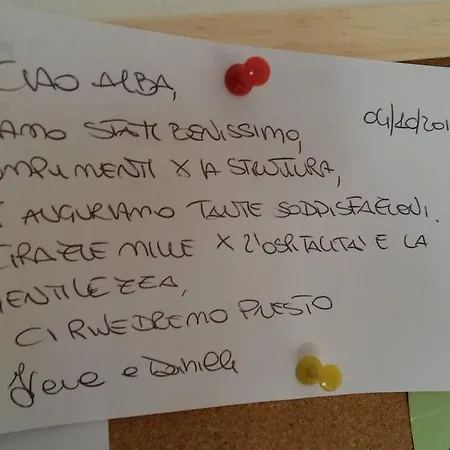 CIAO ALBA,
04/10/201
IAMO STATI BENISSIMO,
OMPLIMENTI X LA STRUTTURA,
I AUGURIAMO TANTE SODDISFAZIONI.
GRAZIE MILLE X L'OSPITALITA' E LA
GENTILEZZA,
CI RIVEDREMO PRESTO
e Daniele